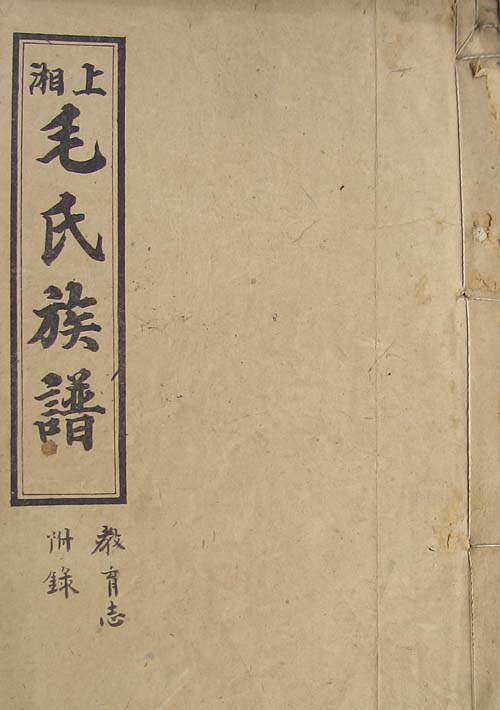 上湘
毛氏族譜
教育志
附錄